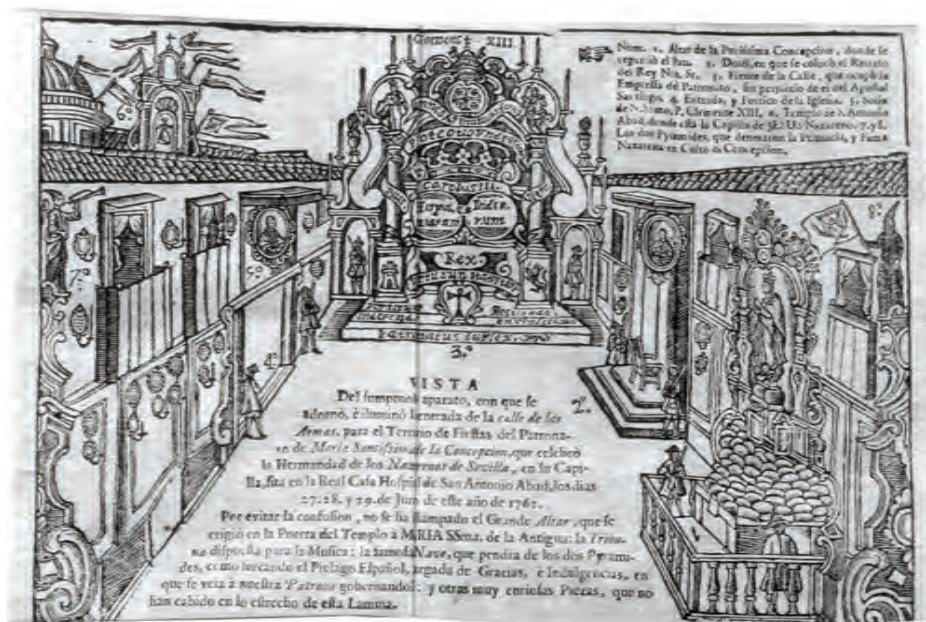 Clemens XIII
Num. 1. Altar de la Purissima Concepcion, donde se
repartiò el Pan. 2. Dosel, en que se colocò el Retrato
del Rey Nro. Sr. 3. Frente de la Calle, que ocupò la
Empressa del Patronato, sin perjuicio de el del Apostol
Santiago. 4. Entrada, y Portico de la Iglesia. 5.
de N. Smo. P. Clemente XIII. 6. Templo de S. Antonio
Abad, donde està la Capilla de Nazareno. 7. y 8.
Las dos Pyramides, que denotaron la Primacìa, y Fama
Nazarena en Culto de Concepcion.
Carolus III.
Rex
7.º
8.º
5.º
4.º
3.º
2.
VISTA
Del sumptuoso aparato, con que se
adornò, è iluminò la entrada de la calle de las
Armas, para el Termino de Fiestas del Patrona-
en de Maria Santissima de la Concepcion, que celebrò
la Hermandad de los Nazarenos de Sevilla, en su Capi-
lla, sita en la Real Casa Hospital de San Antonio Abad, los dias
27. 28. y 29. de de este año de
Por evitar la confusion, no se ha estampado el Grande Altar, que se
erigiò en la Puerta del Templo à MARIA SSma. de la Antigua: la
dispuesta para la Musica: la famosa Nave, que pendia de los dos Pyrami-
des, como surcando el Pielago Español, cargada de Gracias, è Indulgencias, en
que se veìa à nuestra Patrona gobernando: y otras muy curiosas Piezas, que no
han cabido en lo estrecho de esta Lamina.